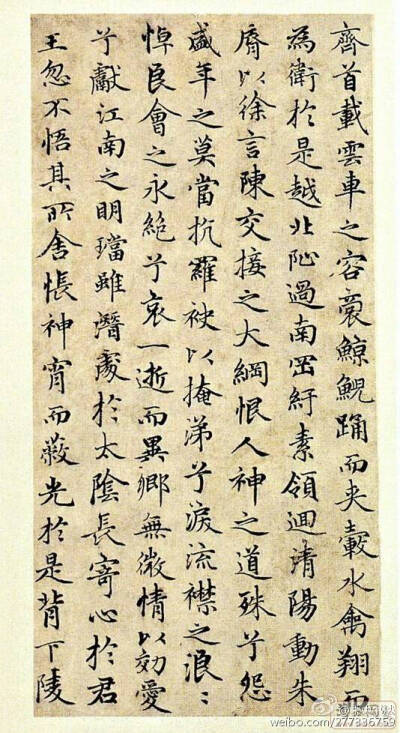 齊首載雲車之容裔鯨鯢踊而夾轂水禽翔而
為衛於是越北阯過南岡紆素領迴清陽動朱
脣以徐言陳交接之大綱恨人神之道殊兮怨
盛年之莫當抗羅袂以掩涕兮淚流襟之浪〻
悼良會之永絕兮哀一逝而異鄉無微情以効愛
兮獻江南之明璫雖潛處於太陰長寄心於君
王忽不悟其所舍悵神宵而蔽光於是背下陵
weibo.com/277336759